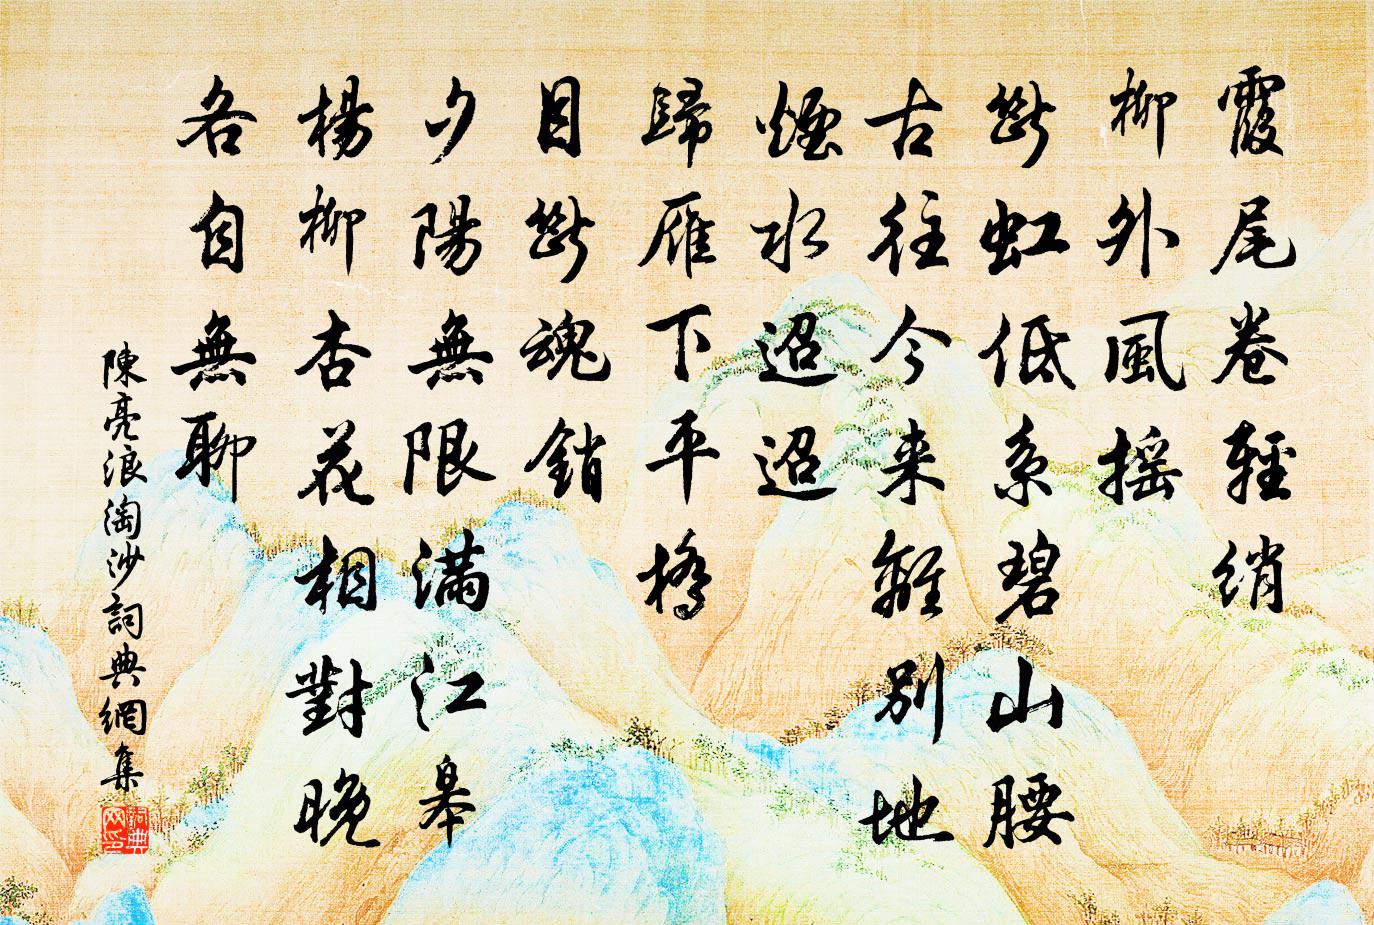 霞尾卷輕綃
柳外風搖
斷虹低系碧山腰
古往今来離別地
煙水迢迢
歸雁下平橋
目斷魂銷
夕陽無限滿江皋
楊柳杏花相對晚
各自無聊
陳亮浪淘沙詞典網集
詞典网印